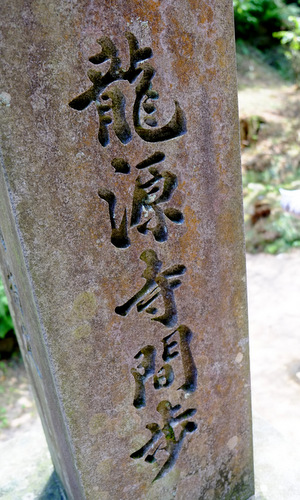 龍源寺間歩